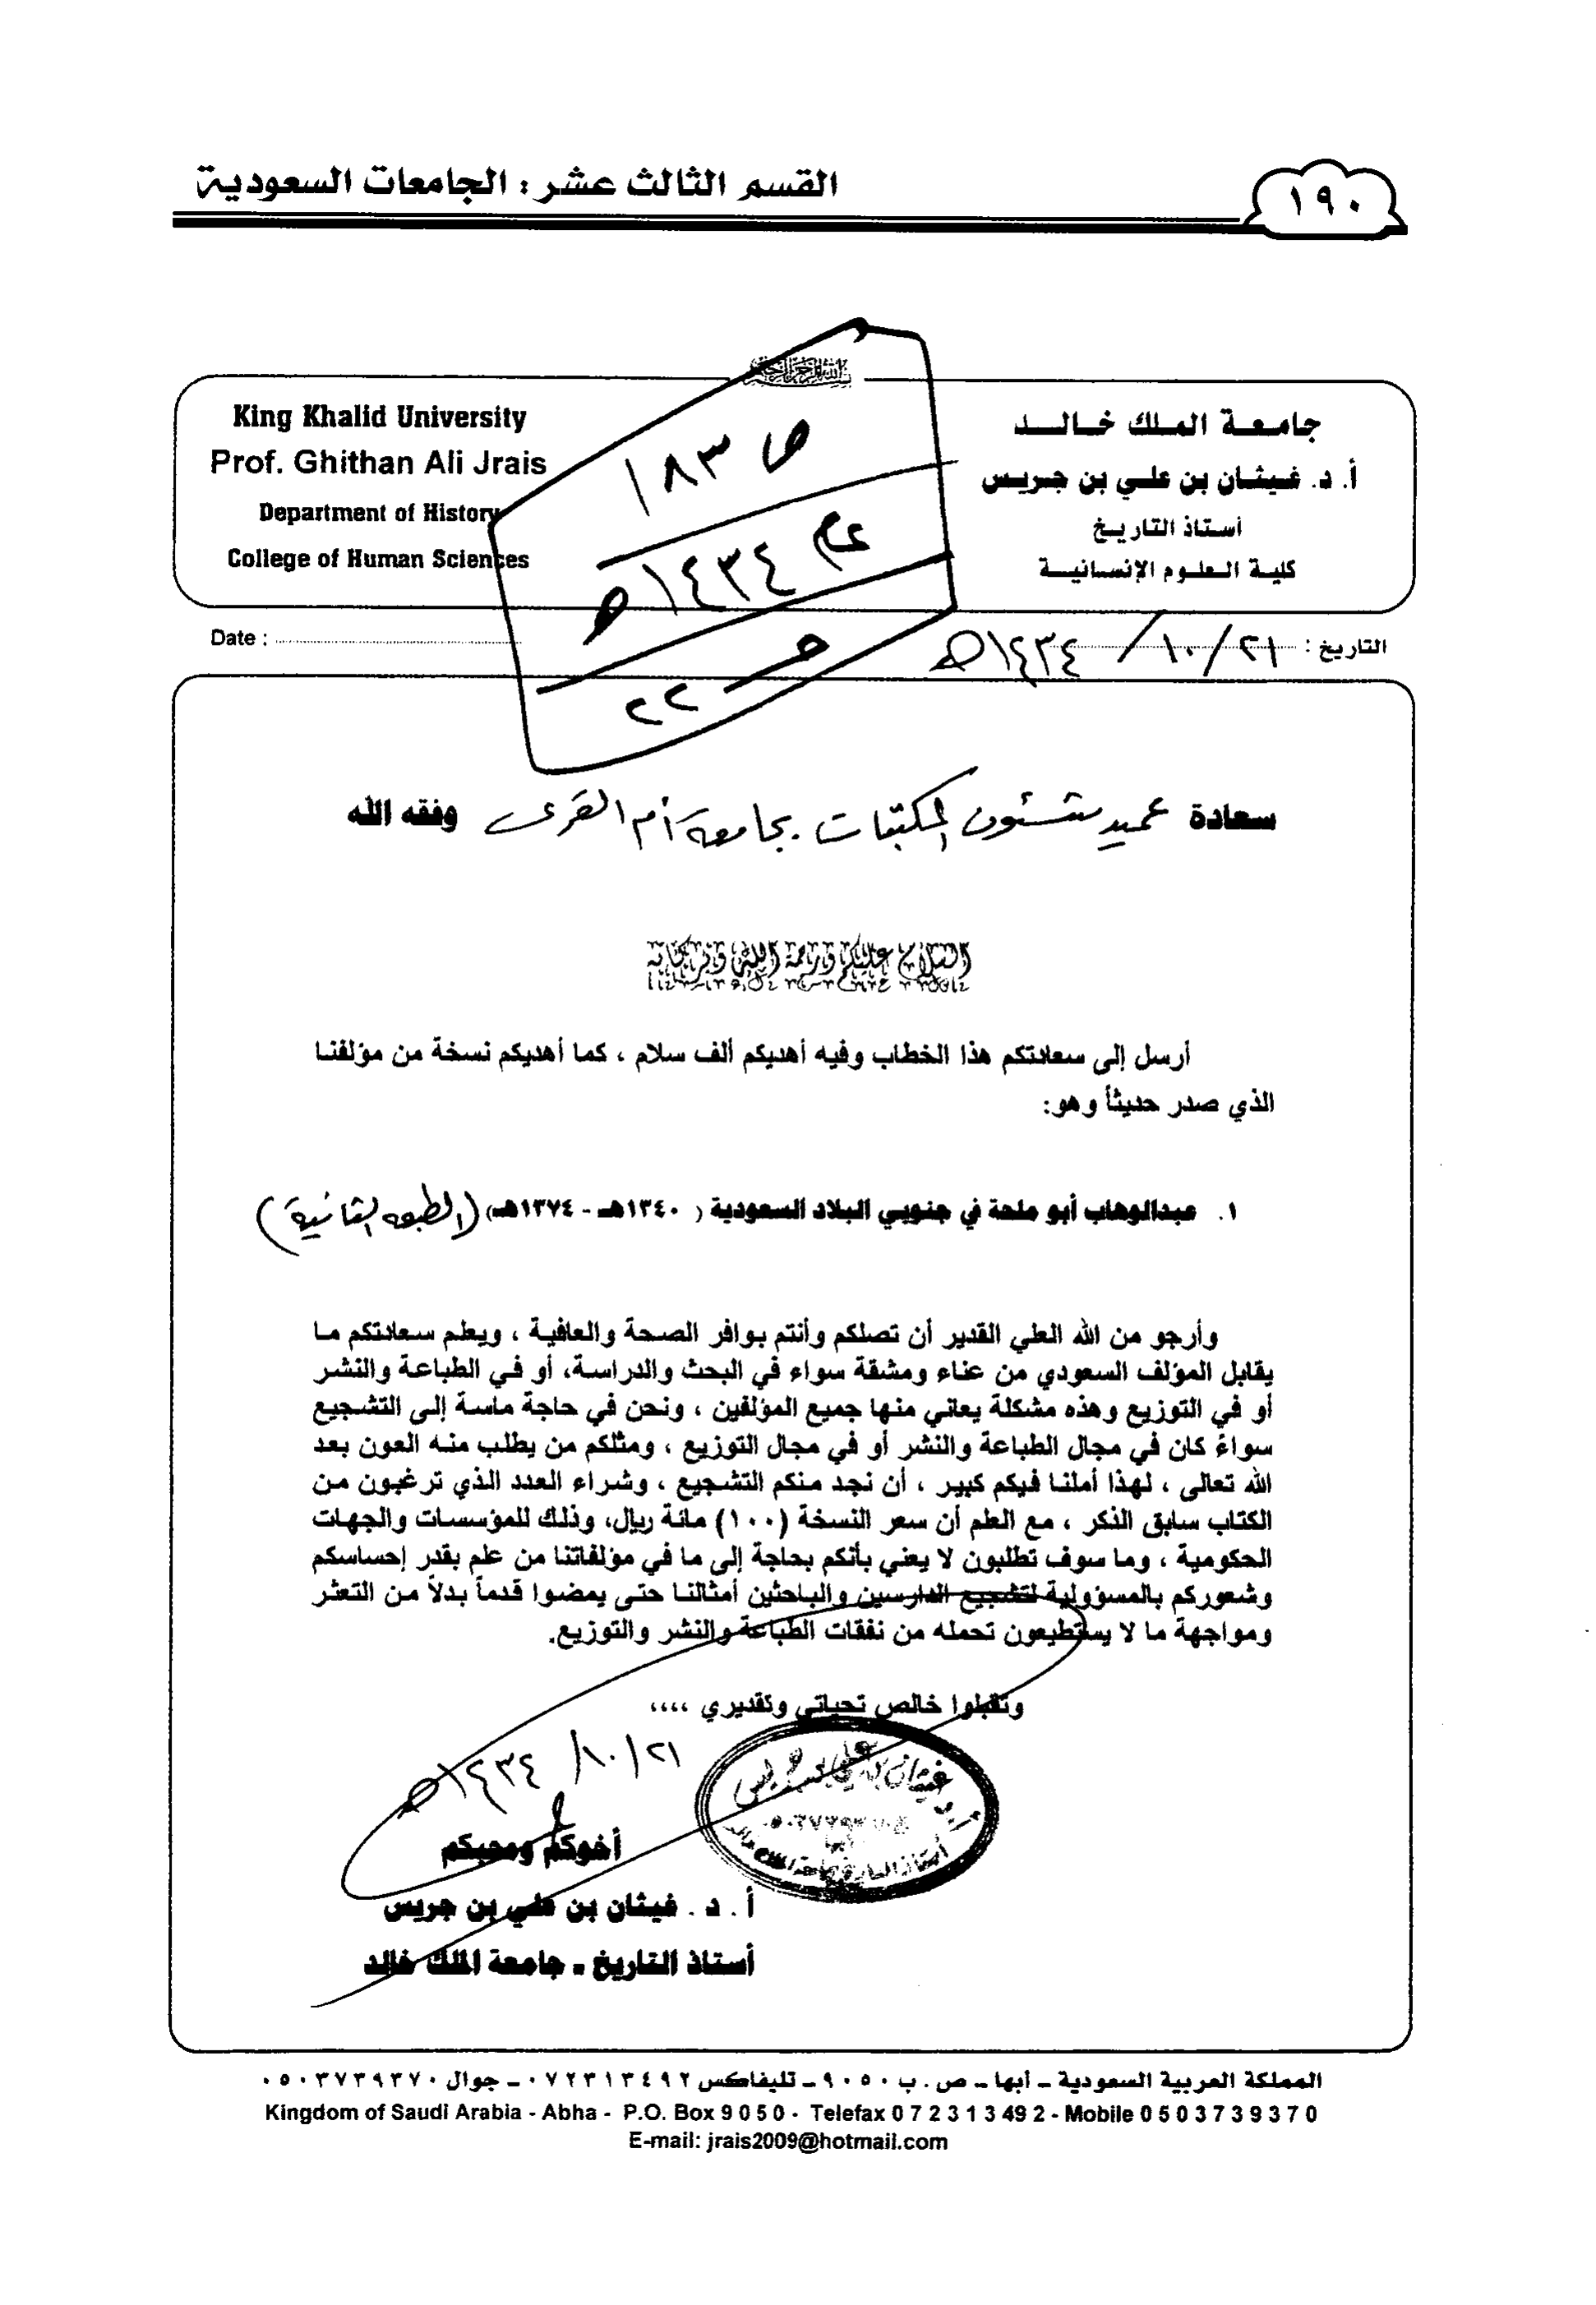 ١٩٠
القسم الثالث عشر : الجامعات السعودية
بسم الله الرحمن الرحيم
جامعة الملك خالد
أ. د. غيثان بن علي بن جريس
أستاذ التاريخ
كلية العلوم الإنسانية
King Khalid University
Prof. Ghithan Ali Jrais
Department of History
College of Human Sciences
ص ١٨٣
عام ١٤٣٤هـ
حـ ٢٢
التاريخ : ٢١/١٠/١٤٣٤هـ
Date :
سعادة عميد شئون المكتبات بجامعة أم القرى وفقه الله
السلام عليكم ورحمة الله وبركاته
أرسل إلى سعادتكم هذا الخطاب وفيه أهديكم ألف سلام ، كما أهديكم نسخة من مؤلفنا
الذي صدر حديثاً وهو:
١. عبدالوهاب أبو ملحة في جنوبي البلاد السعودية ( ١٣٤٠هـ - ١٣٧٤هـ) (الطبعة الثانية)
وأرجو من الله العلي القدير أن تصلكم وأنتم بوافر الصحة والعافية ، ويعلم سعادتكم ما
يقابل المؤلف السعودي من عناء ومشقة سواء في البحث والدراسة، أو في الطباعة والنشر
أو في التوزيع وهذه مشكلة يعاني منها جميع المؤلفين ، ونحن في حاجة ماسة إلى التشجيع
سواءً كان في مجال الطباعة والنشر أو في مجال التوزيع ، ومثلكم من يطلب منه العون بعد
الله تعالى ، لهذا أملنا فيكم كبير ، أن نجد منكم التشجيع ، وشراء العدد الذي ترغبون من
الكتاب سابق الذكر ، مع العلم أن سعر النسخة (١٠٠) مائة ريال، وذلك للمؤسسات والجهات
الحكومية ، وما سوف تطلبون لا يعني بأنكم بحاجة إلى ما في مؤلفاتنا من علم بقدر إحساسكم
وشعوركم بالمسؤولية لتشجيع الدارسين والباحثين أمثالنا حتى يمضوا قدماً بدلاً من التعثر
ومواجهة ما لا يستطيعون تحمله من نفقات الطباعة والنشر والتوزيع.
وتقبلوا خالص تحياتي وتقديري ،،،،
٢١/١٠/١٤٣٤هـ
أخوكم ومحبكم
أ . د . غيثان بن علي بن جريس
أستاذ التاريخ - جامعة الملك خالد
المملكة العربية السعودية – أبها – ص . ب ٩٠٥٠ – تليفاكس ٠٧٢٣١٣٤٩٢ – جوال ٠٥٠٣٧٣٩٣٧٠
Kingdom of Saudi Arabia - Abha - P.O. Box 9 0 5 0 - Telefax 0 7 2 3 1 3 49 2 - Mobile 0 5 0 3 7 3 9 3 7 0
E-mail: jrais2009@hotmail.com